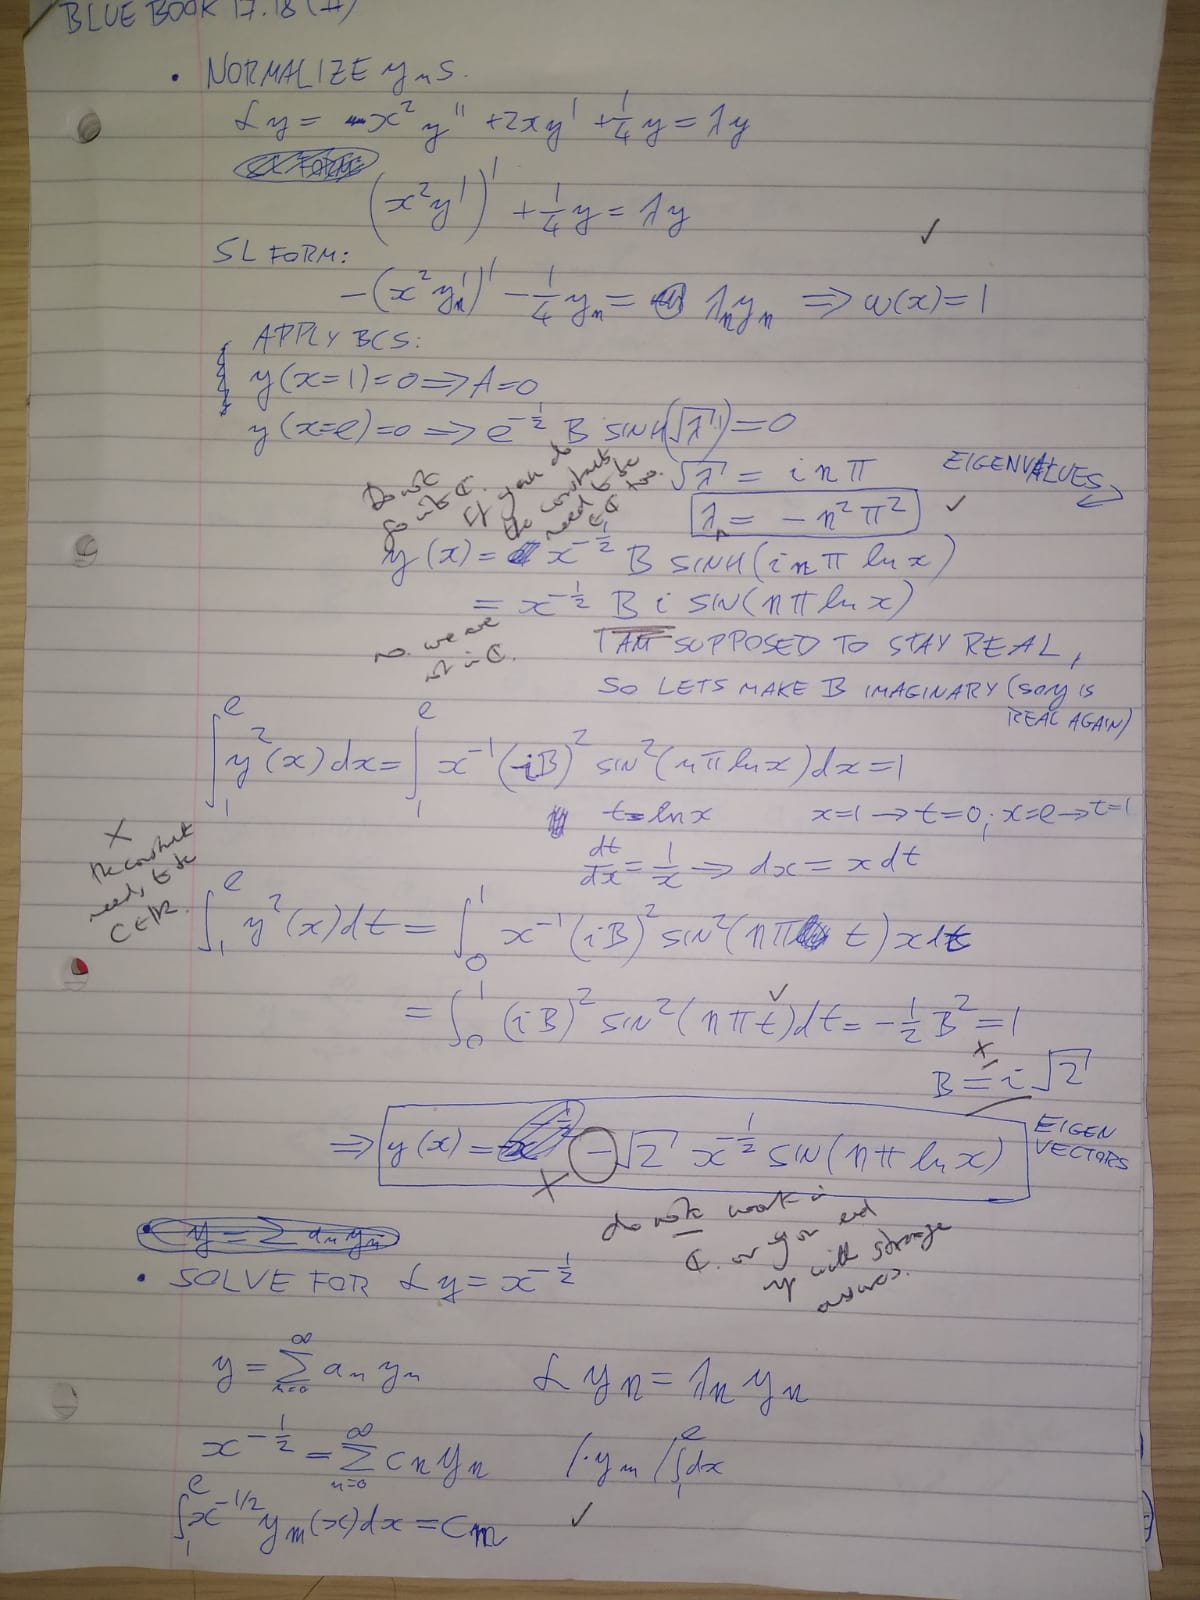 BLUE BOOK 17.18 (A)
• NORMALIZE yₙS.
ℒy = -x² y'' + 2xy' + 1/4 y = λy
(x²y')' + 1/4 y = λy ✓
SL FORM:
-(x²yₙ')' - 1/4 yₙ = λₙyₙ ⇒ ω(x)=1
APPLY BCS:
y(x=1)=0 ⇒ A=0
y(x=e)=0 ⇒ e^(-1/2) B SINH(√λ · 1)=0
Do not go into ℂ. If you do the constants need to be ∈ ℂ too.
√λ = inπ
EIGENVALUES
λₙ = -n²π² ✓
y(x) = x^(-1/2) B SINH(inπ ln x)
= x^(-1/2) B i SIN(nπ ln x)
no. we are in ℂ.
I AM SUPPOSED TO STAY REAL,
SO LETS MAKE B IMAGINARY (so y IS
REAL AGAIN)
∫₁ᵉ y²(x)dx = ∫₁ᵉ x⁻¹(iB)² SIN²(nπ ln x)dx = 1
t = ln x x=1 → t=0; x=e → t=1
dt/dx = 1/x ⇒ dx = x dt
X the constant needs to be C∈ℝ.
∫₁ᵉ y²(x)dt = ∫₀¹ x⁻¹(iB)² SIN²(nπ t) x dt
= ∫₀¹ (iB)² SIN²(nπt)dt = -1/2 B² = 1
✓
X
B = i√2
⇒ y(x) = -√2 x^(-1/2) SIN(nπ ln x)
EIGEN
VECTORS
X
do not work in ℂ. or you end up with strange answers.
y = Σ aₙyₙ
• SOLVE FOR ℒy = x^(-1/2)
y = Σ_{n=0}^∞ aₙ yₙ ℒyₙ = λₙyₙ
x^(-1/2) = Σ_{n=0}^∞ cₙyₙ /·yₘ /∫₁ᵉdx
∫₁ᵉ x^(-1/2) yₘ(x)dx = cₘ ✓